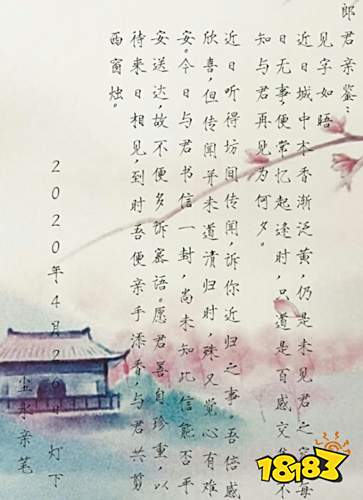 郎君亲鉴：
见字如晤
近日城中木香渐泛黄，仍是未见君之
日无事，便常忆起逢时，只道是百感交 不
知与君再见为何夕。
近日听得坊间传闻，诉你近归之事，吾倍感
欣喜，但传闻并未道清归时，殊又觉心有难
安。今日与君书信一封，尚未知此信能否平
安送达，故不便多诉蜜语。愿君善自珍重，以
待来日相见，到时吾便亲手添香，与君共剪
西窗烛。
2020年4月26日 灯下
尘水亲笔
18183